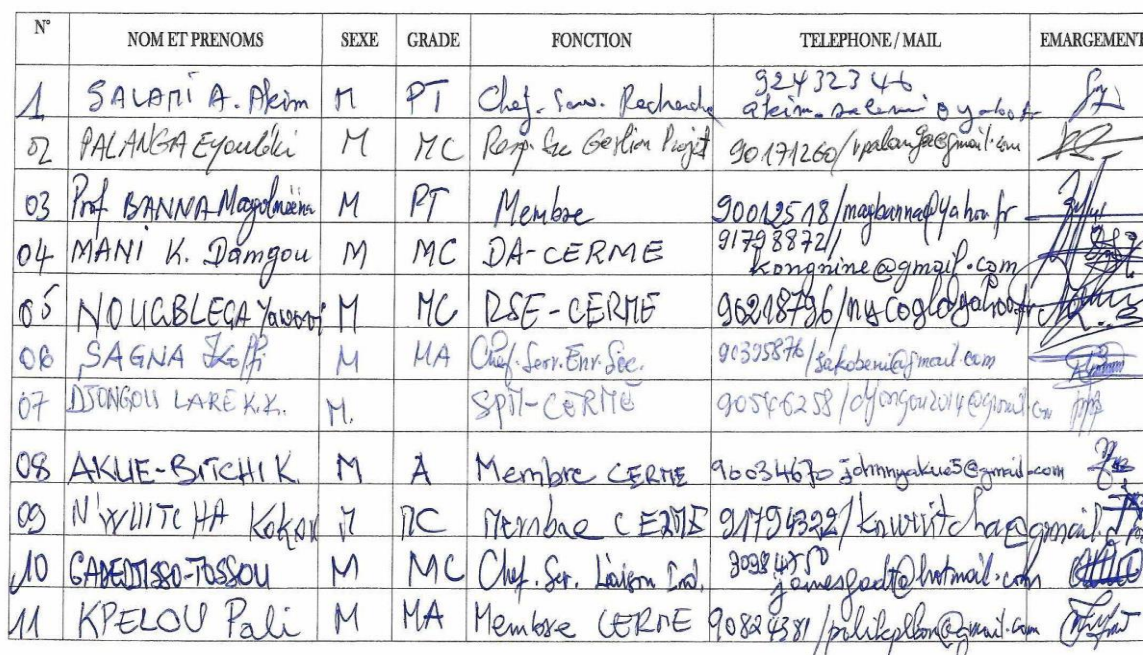 N° NOM ET PRENOMS SEXE GRADE FONCTION TELEPHONE / MAIL EMARGEMENT
1 SALAMI A. Akim M PT Chef. Serv. Recherche 92432346
akim_salami@yahoo.fr
02 PALANGA Eyouléki M MC Resp. Sce Gestion Projet 90171260/vpalanga@gmail.com
03 Prof BANNA Magolmèèna M PT Membre 90012518/magbanna@yahoo.fr
04 MANI K. Damgou M MC DA-CERME 91798872/
kongnine@gmail.com
05 NOUGBLEGA Yawovi M MC RSE-CERME 90218796/nycoglo@yahoo.fr
06 SAGNA Koffi M MA Chef. Serv. Env. Soc. 90395876/sakobeni@gmail.com
07 DJONGOU LARE K.K. M. SPM-CERME 90546258/djongou2014@gmail.com
08 AKUE-BITCHI K. M A Membre CERME 96034670 johnnyakue5@gmail.com
09 N'WUITCHA Kokou M MC Membre CERME 91794322/knwuitcha@gmail.
10 GADEDJISSO-TOSSOU M MC Chef. Ser. Liaison Ind. 90984750
jamesgadt@hotmail.com
11 KPELOU Pali M MA Membre CERME 90824381